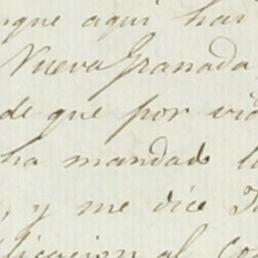 que aqui has
Nueva Granada,
de que por vid
ha mandado l
, y me dice T
licacion al Con